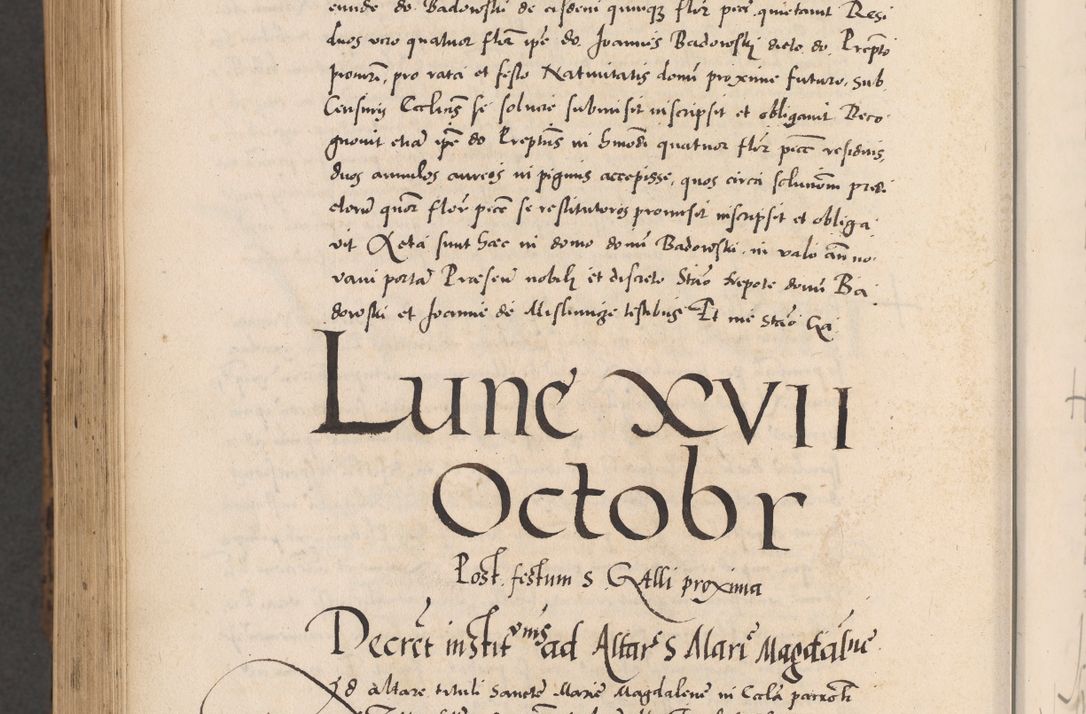 eunde do. Badowski de eisdem quinqz flor pece quietauit Resi
duos vero quatuor flor ipe do. Joannis Badowski dicto do. Prepto
promisit, pro rata et festo Natiuitatis domi proxime futuro, sub
Censuris Ecclicis se soluere submisit inscripsit et obligauit Reco
gnouit etia ipe do Preptus in hmodi quatuor flor pece residuis,
duos annulos aureos in pignus accepisse, quos circa solutionem predi
ctoru quor flor pece se restituturos promisit inscripsit et obliga
vit Acta sunt haec in domo domi Badowski in valo ann no
porta Presen nobili et discreto Stao Nepote domi Ba
dowski et Joanne de Mislimicze testibus Et me Stao Ga
Lune XVII
Octobr
Post festum S GAlli proxima
Decret institvnis ad Altare S Marie Magdalne
Ad altare tituli Sancte Marie Magdalene in Eccla parrochi